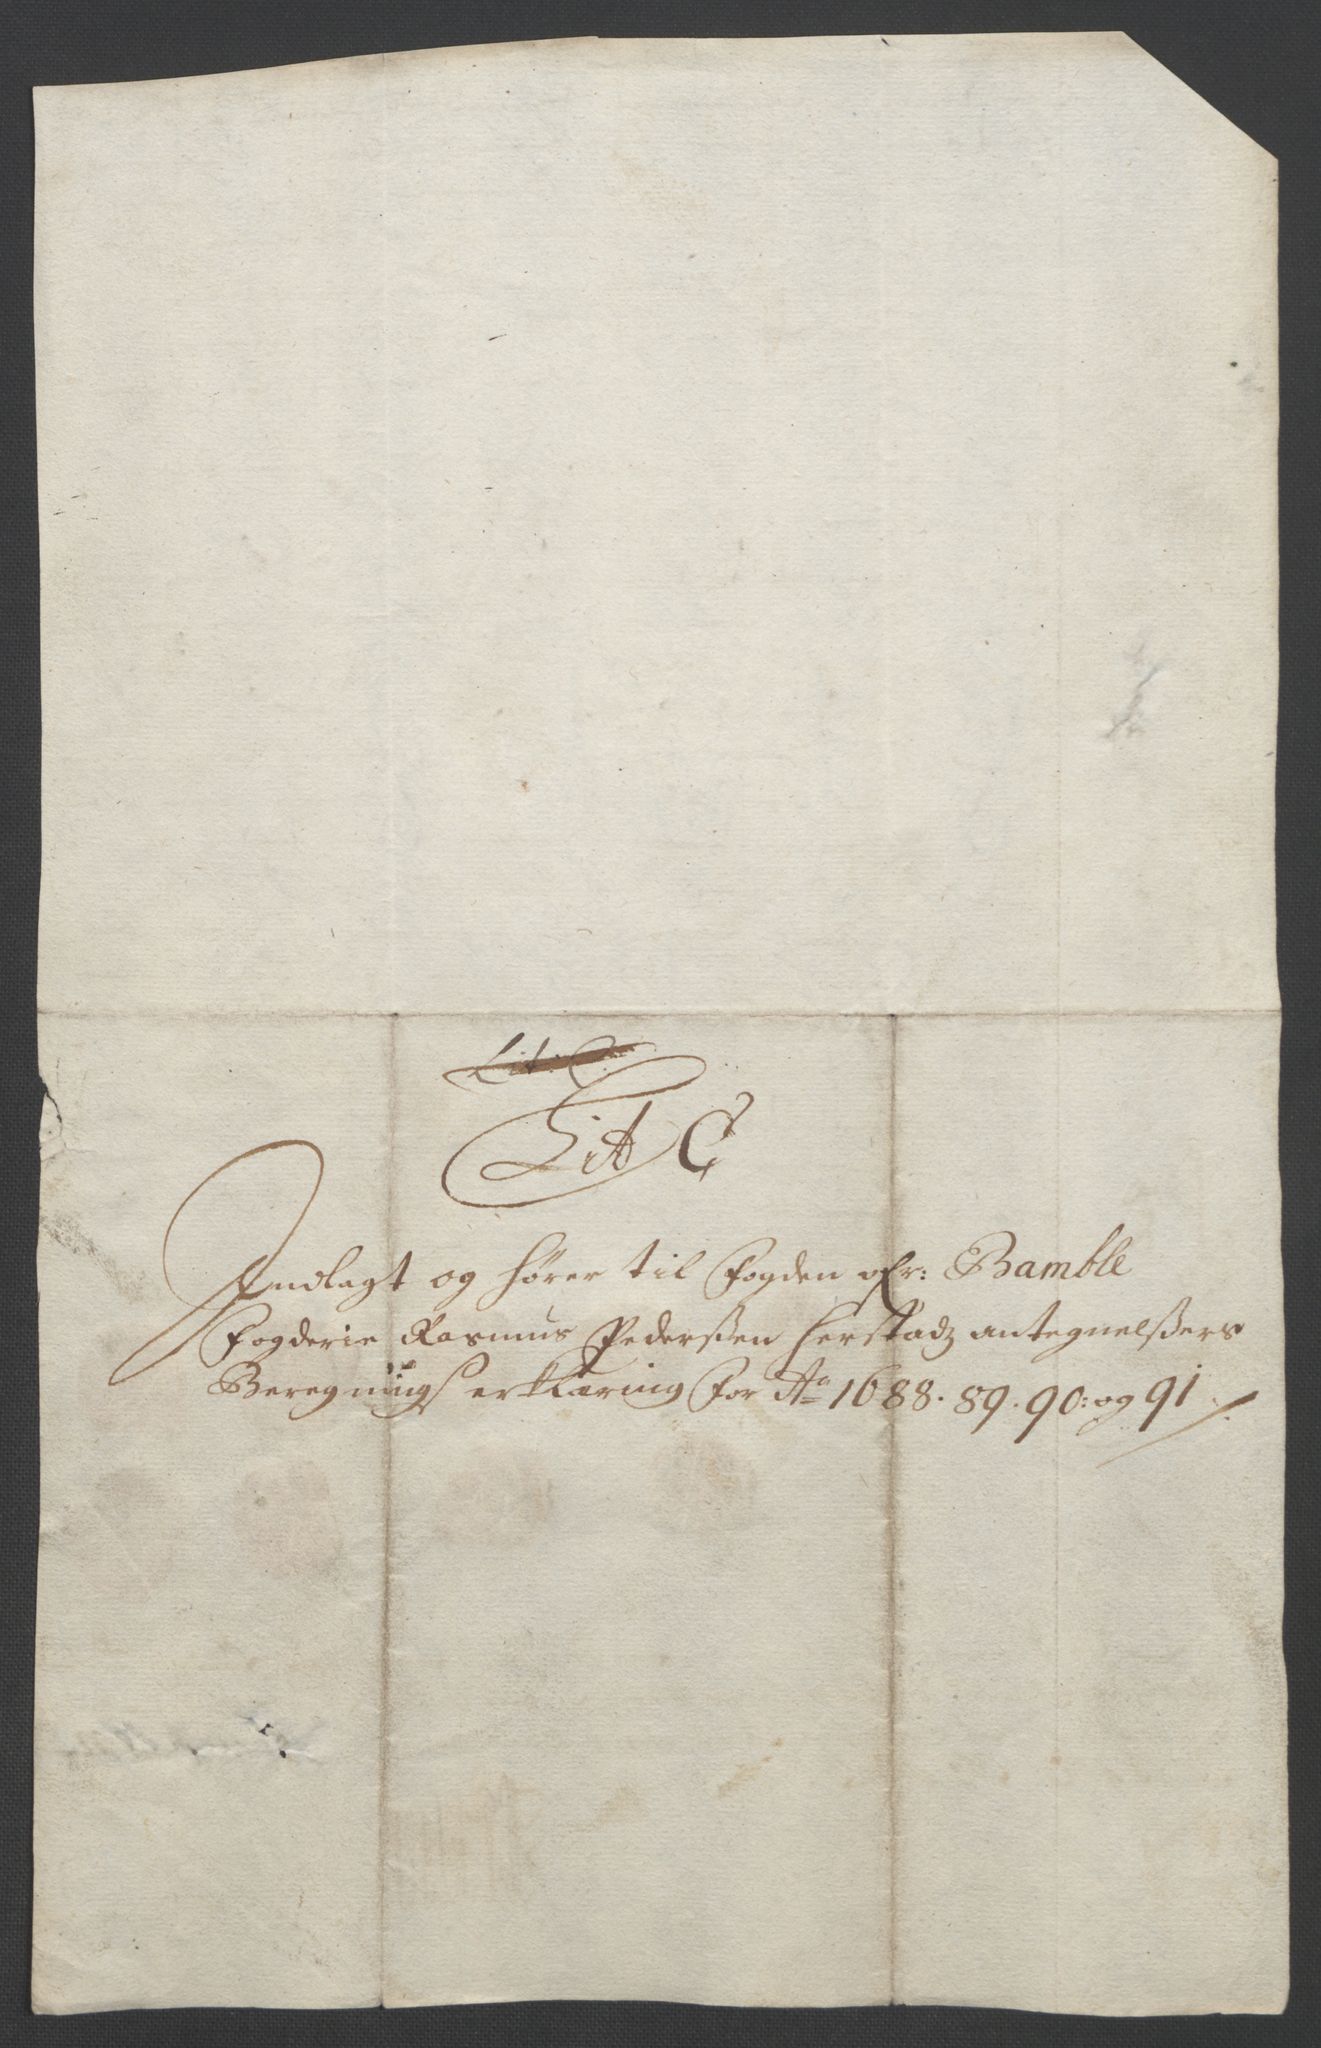 Lit: C.
Lit C
Indlagt og hører til Fogden ofr: Bamble
Fogderie Rasmus Pederßen Herstadz antegnelßers
Beregnings erklæring for Ao 1688. 89. 90: og 91